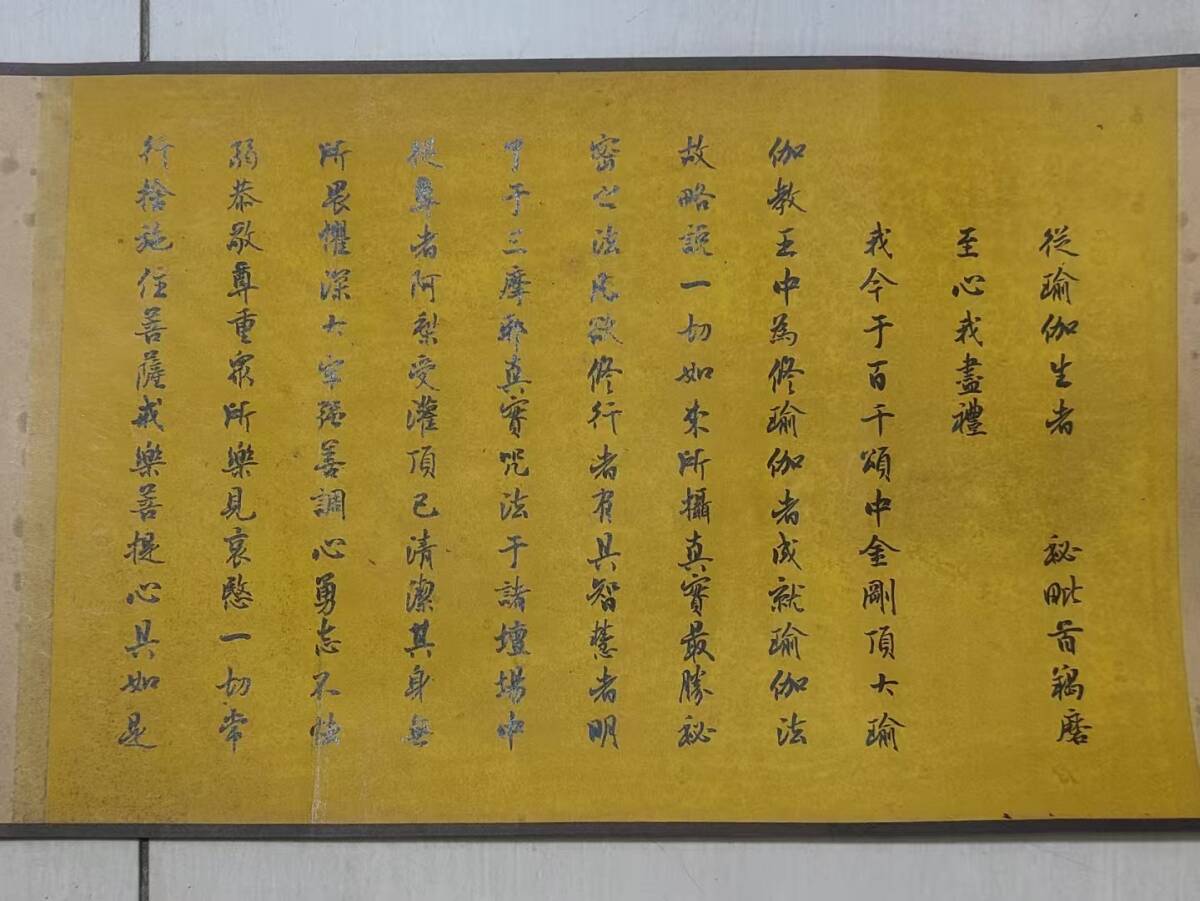 從瑜伽生者 秘毗首羯磨
至心我盡禮
我今于百千頌中金剛頂大瑜
伽教王中為修瑜伽者成就瑜伽法
故略說一切如來所攝真實最勝秘
密之法凡欲修行者有具智慧者明
了于三摩耶真實咒法于諸壇場中
從尊者阿梨受灌頂已清潔其身無
所畏懼深大牢强善調心勇志不怯
弱恭敬尊重眾所樂見哀愍一切常
行捨施住菩薩戒樂菩提心具如是